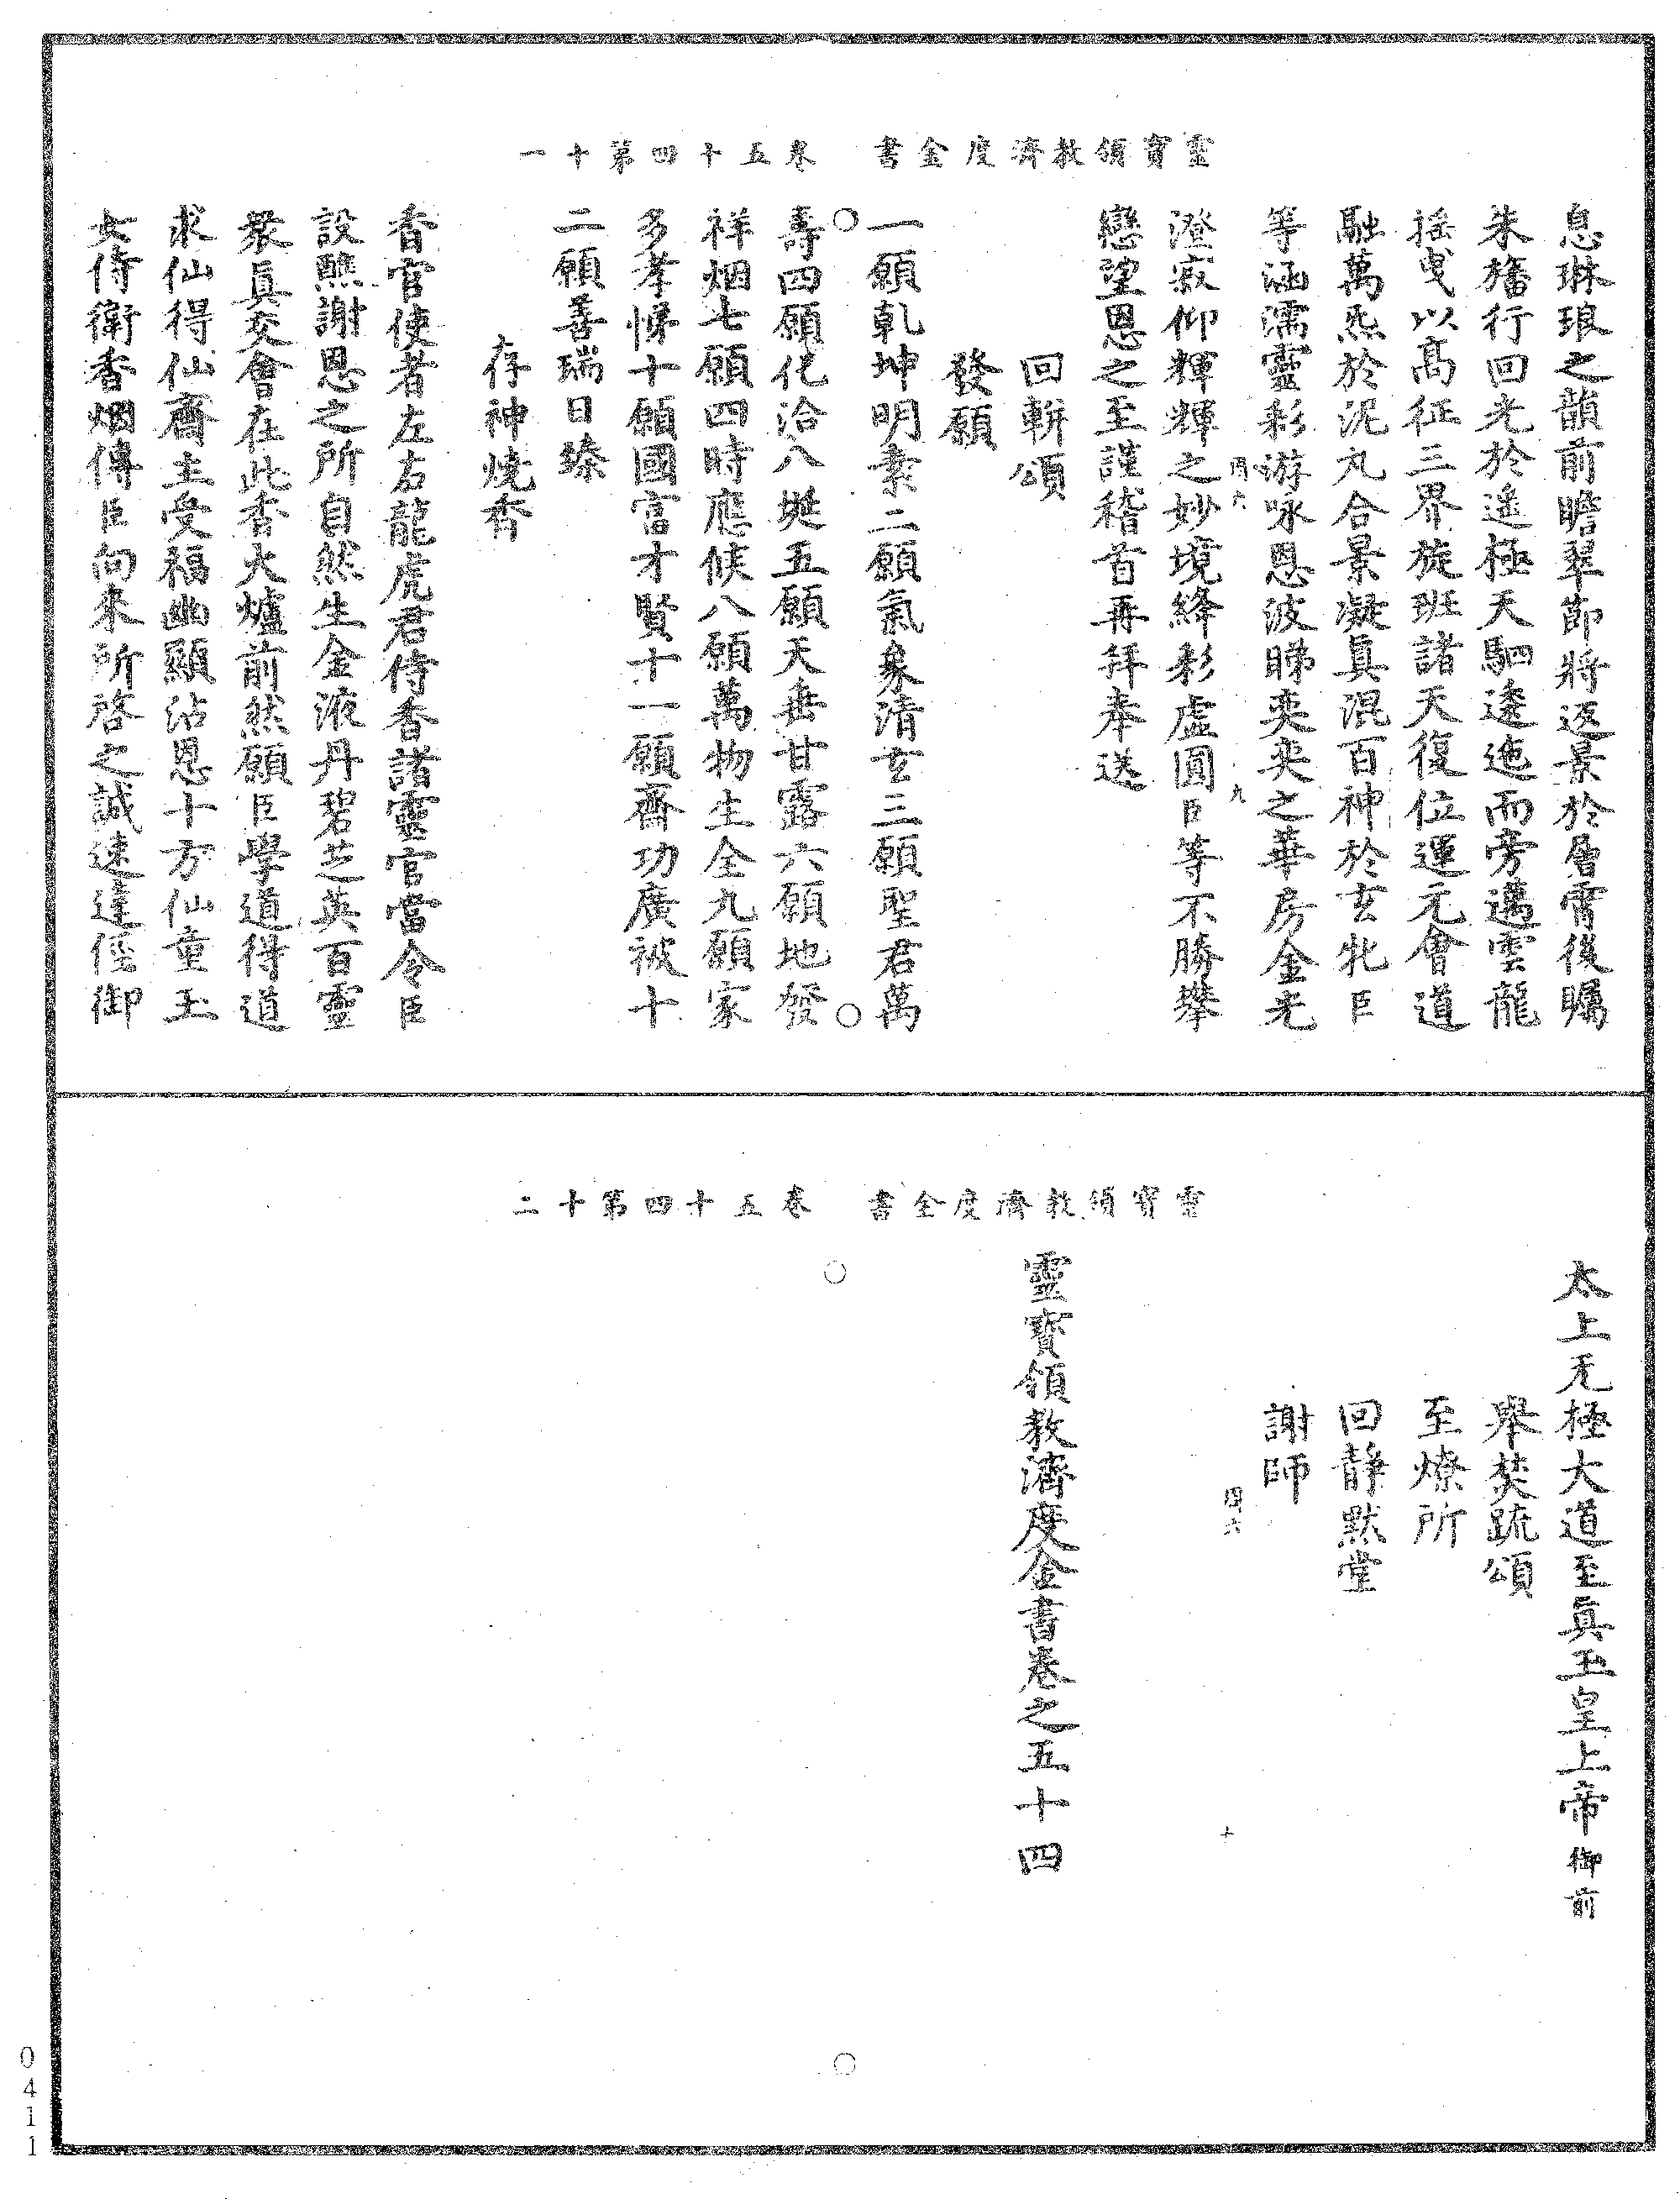 靈寶領教濟度金書　卷五十四第十一
息琳琅之韻前瞻翠節將返景於層霄後矚
朱旛行回光於遥極天駟逶迤而旁邁雲龍
摇曳以高征三界旋班諸天復位運元會道
融萬炁於泥丸合景凝眞混百神於玄牝臣
等涵濡靈彩游咏恩波睇奕奕之華房金光
四六　九
澄寂仰輝輝之妙境絳彩虚圓臣等不勝攀
戀望恩之至謹稽首再拜奉送
回軿頌
發願
一願乾坤明素二願氣象清玄三願聖君萬
壽四願化洽八埏五願天垂甘露六願地發
祥烟七願四時應候八願萬物生全九願家
多孝悌十願國富才賢十一願齋功廣被十
二願善瑞日臻
存神燒香
香官使者左右龍虎君侍香諸靈官當令臣
設醮謝恩之所自然生金液丹碧芝英百靈
衆眞交會在此香火爐前然願臣學道得道
求仙得仙齋主受福幽顯沾恩十方仙童玉
女侍衛香烟傳臣向來所啓之誠速達徑御
靈寶領教濟度金書　卷五十四第十二
太上无極大道至眞玉皇上帝御前
舉焚疏頌
至燎所
回靜默堂
謝師
四六　十
靈寶領教濟度金書卷之五十四
0411